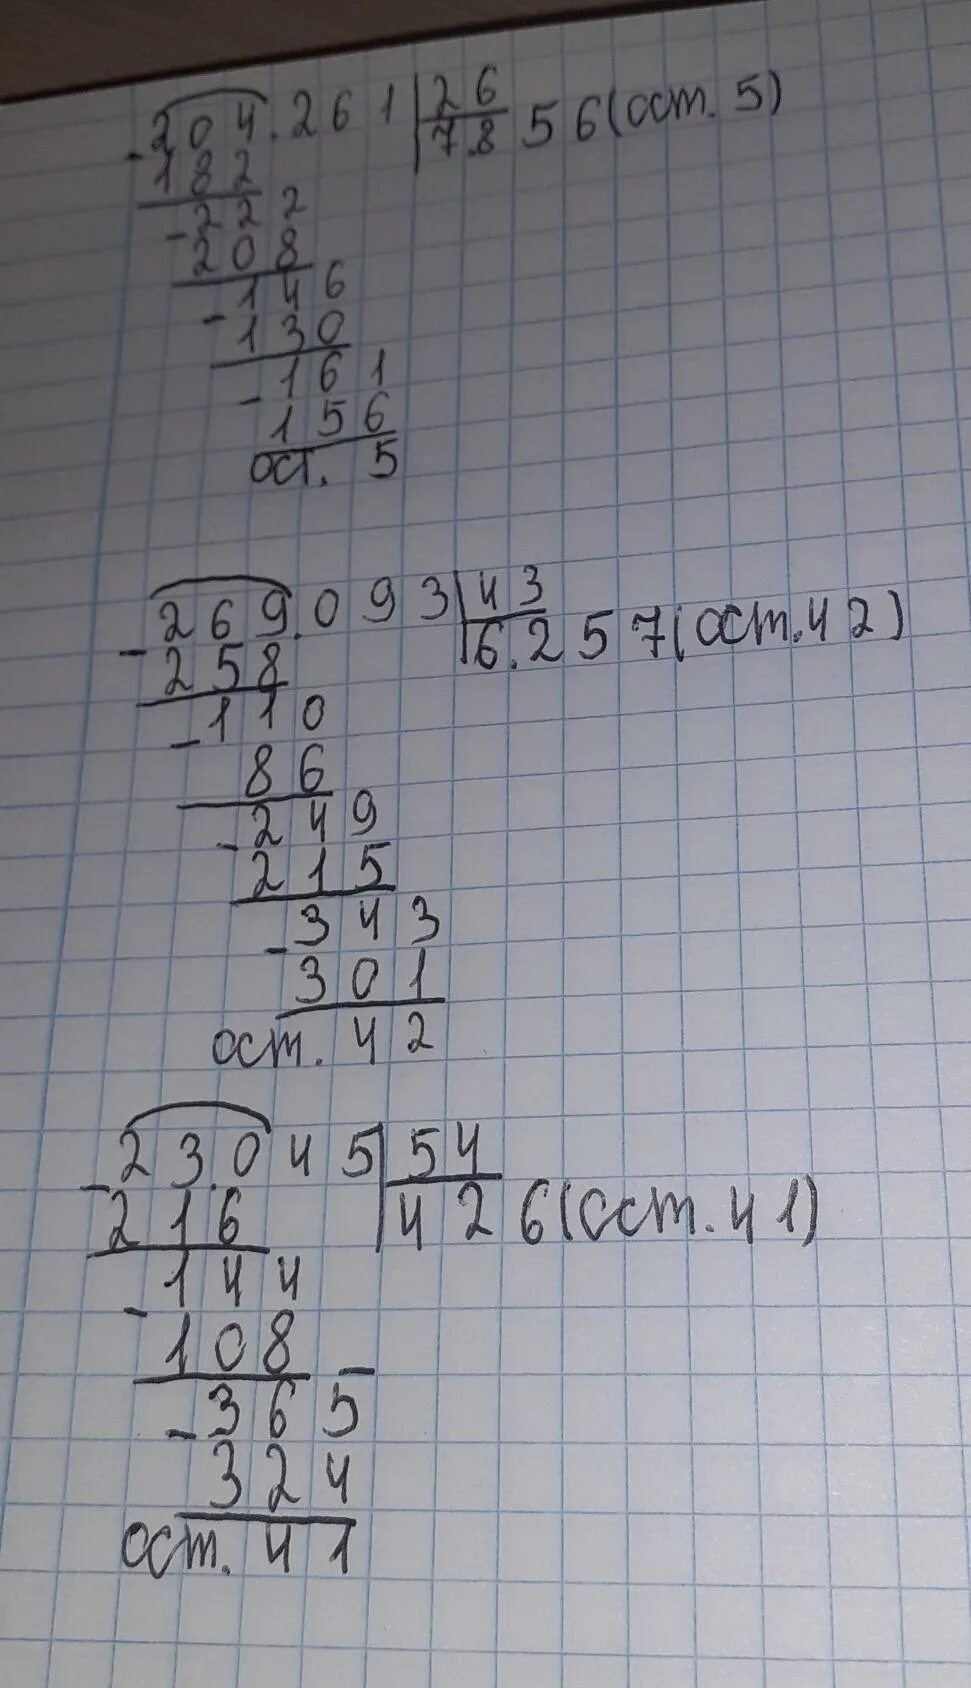 204.261 26
182 7.856(ост. 5)
222
208
146
130
161
156
ост. 5
269.093 43
258 6.257(ост. 42)
110
86
249
215
343
301
ост. 42
23.045 54
216 426(ост. 41)
144
108
365
324
ост. 41